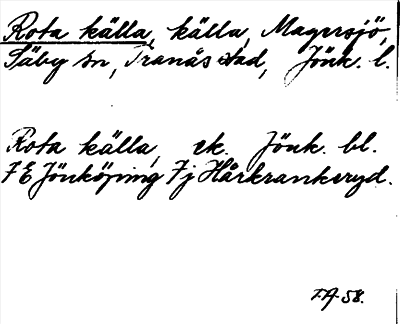 Rota källa, källa, Magersjö,
Säby sn, Tranås stad, Jönk. l.
Rota källa, ek. Jönk. bl.
7 E Jönköping 7j Hårkrankeryd.
F.A. 58.